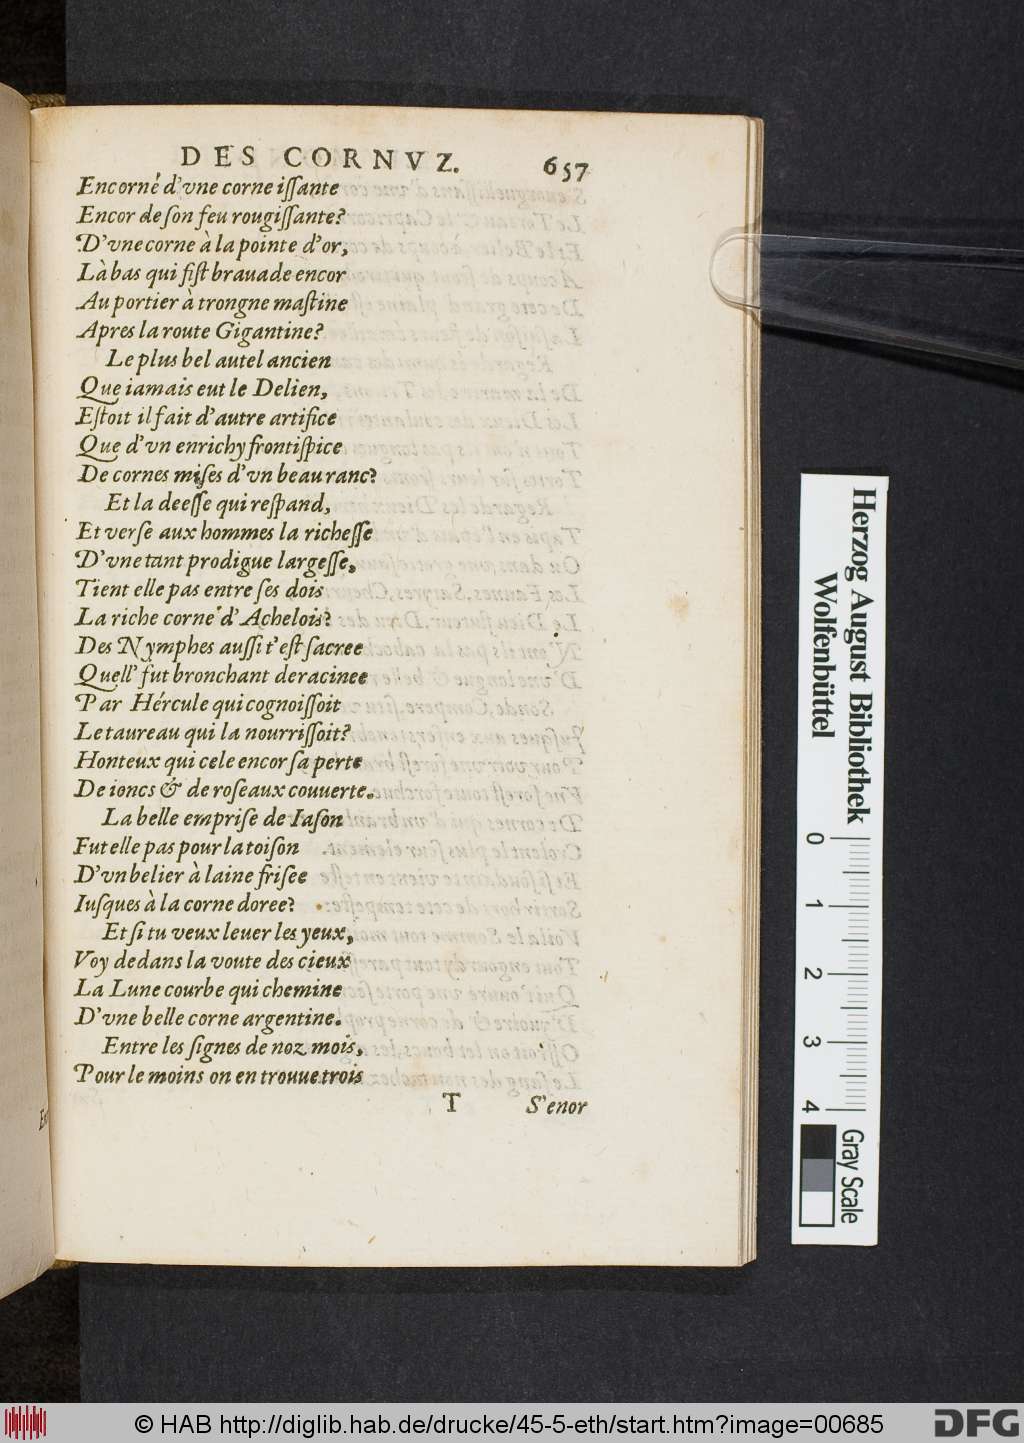 DES CORNVZ. 657
Encorné d'vne corne iſſante
Encor de ſon feu rougiſſante?
D'vne corne à la pointe d'or,
Là bas qui fiſt brauade encor
Au portier à trongne maſtine
Apres la route Gigantine?
Le plus bel autel ancien
Que iamais eut le Delien,
Eſtoit il fait d'autre artifice
Que d'vn enrichy frontiſpice
De cornes miſes d'vn beau ranc?
Et la deeſſe qui reſpand,
Et verſe aux hommes la richeſſe
D'vne tant prodigue largeſſe,
Tient elle pas entre ſes dois
La riche corne d'Achelois?
Des Nymphes auſſi t'eſt ſacree
Quell' fut bronchant deracinee
Par Hércule qui cognoiſſoit
Le taureau qui la nourriſſoit?
Honteux qui cele encor ſa perte
De ioncs & de roſeaux couuerte.
La belle empriſe de Iaſon
Fut elle pas pour la toiſon
D'vn belier à laine friſee
Iuſques à la corne doree?
Et ſi tu veux leuer les yeux,
Voy dedans la voute des cieux
La Lune courbe qui chemine
D'vne belle corne argentine.
Entre les ſignes de noz mois,
Pour le moins on en trouue trois
T S'enor
Herzog August Bibliothek
Wolfenbüttel
0 1 2 3 4
Gray Scale
© HAB http://diglib.hab.de/drucke/45-5-eth/start.htm?image=00685
DFG